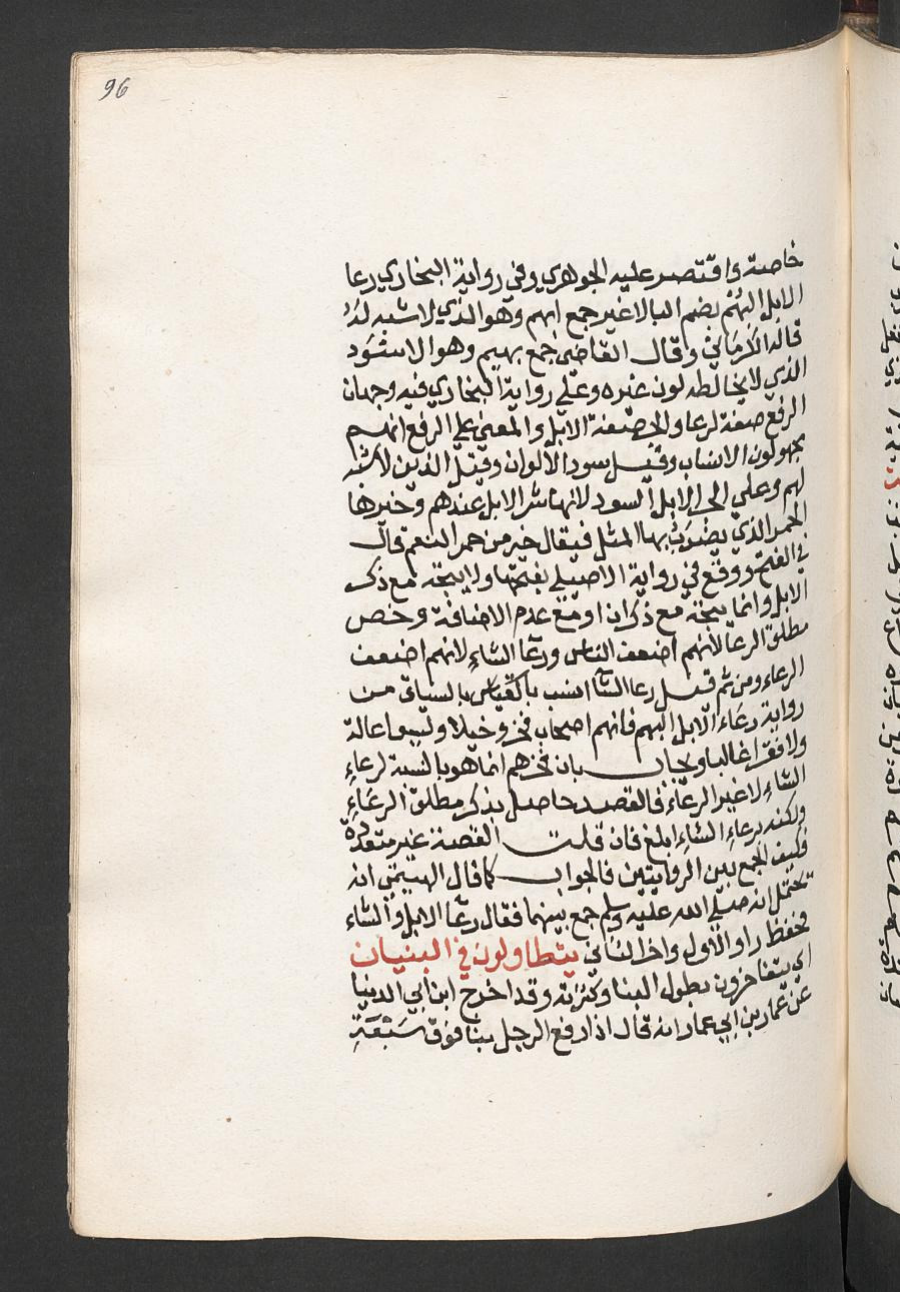 96
خاصة واقتصر عليه الجوهري وفي رواية البخاري رعا
الابل البُهْم بضم البا لاغير جمع ابهم وهو الذي لا شبه لهُ
قاله الكَرمَاني وقال القاضي جمع بهيم وهو الاسْوَد
الذي لا يخالطه لون غيره وعلي رواية البخاري فيه وجهان
الرفع صفة لرعا والجر صفة الابل والمعني علي الرفع انهم
مجهولون الانساب وقيل سود الالوان وقيل الذين لا شئ
لهم وعلي الجر الابل السود لانها شر الابل عندهم وخيرها
الحمر الذي يضْرَبُ بها المثل فيقال خير من حمر النعم قال
في الفتح ووقع في رواية الاصيلي بفتحها ولا يتجه مع ذكر
الابل وانما يتجه مع ذكر ان او مع عدم الاضافة وخص
مطلق الرعا لانهم اضعف الناس ورعَا الشاءِ لانهم اضعف
الرعاء ومن ثم قيل رعا الشا انسب بالقياس بالسياق من
رواية رعَاء الابل البهم فانهم اصحاب فخر وخيلا وليسوا عالة
ولا فقرا غالبا ويجاب بان فخرهم انما هو بالنسبة لرعاءِ
الشاءِ لا غير الرعَاءِ فالقصد حاصل بذكر مطلق الرعَاءِ
ولكنه برعاءِ الشاءِ ابلغ فان قلت القصة غير متعددة
فكيف الجمع بين الروايتين فالجواب كما قال الهيتمي انه
يحتمل انه صلي الله عليه وسلم جمع بينهما فقال رعَا الابل والشاء
فحفظ راو الاول واخر الثاني يتطاولون في البنيان
اي يتفاخرون بطول البنا وكثرته وقد اخرج ابن ابي الدنيا
عن عمار بن ابي عمار انه قال اذا رفع الرجل بنا فوق سَبْعَةِ